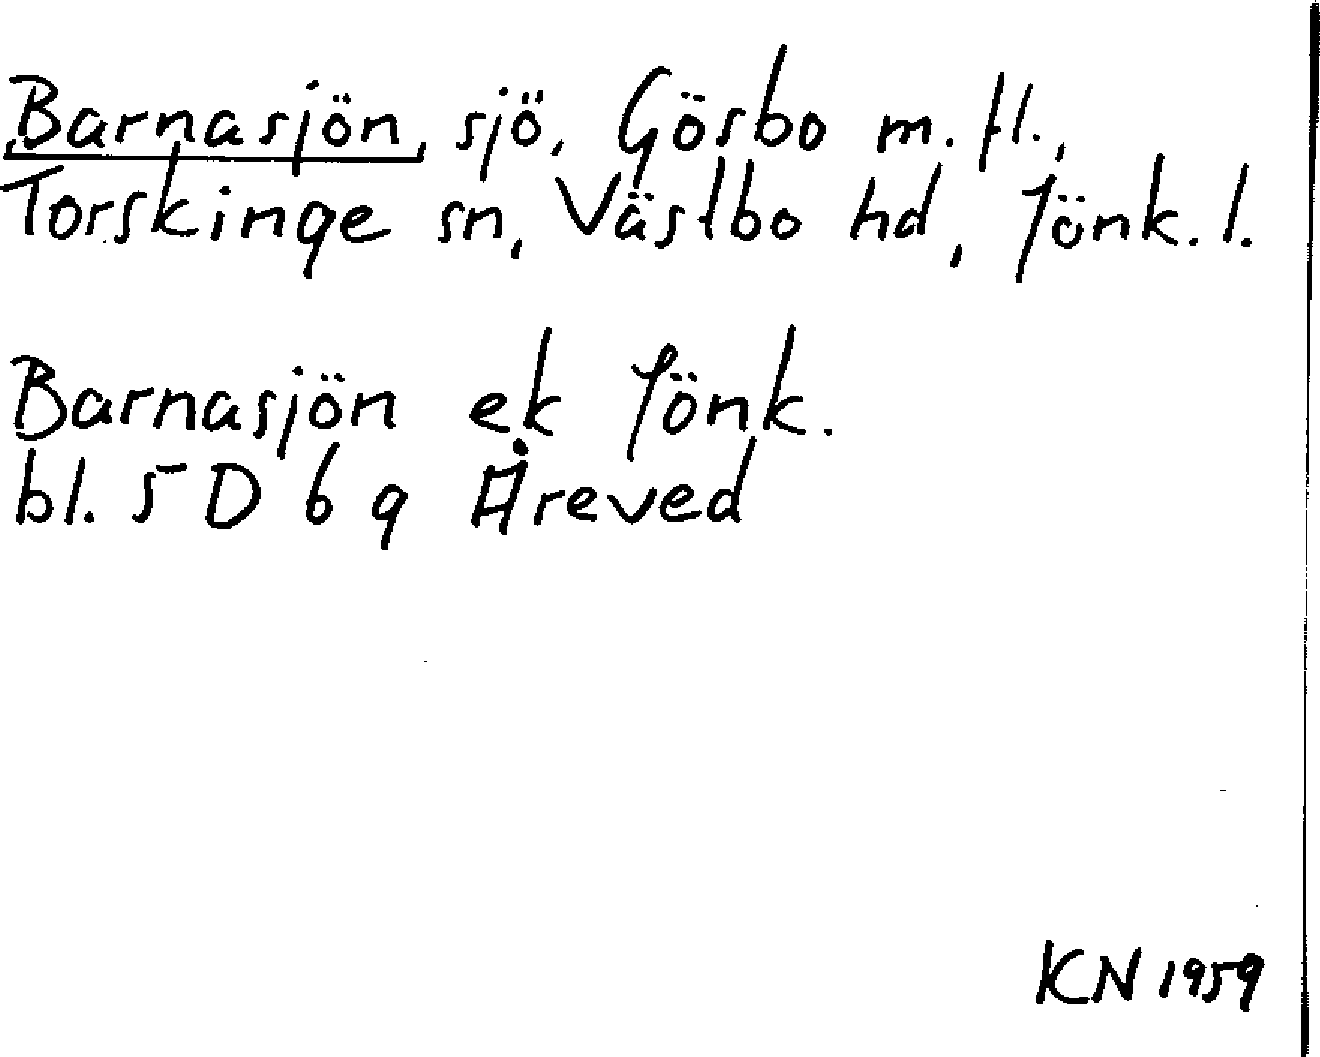 Barnasjön, sjö, Gösbo m. fl.,
Torskinge sn, Västbo hd, Jönk. l.
Barnasjön ek Jönk.
bl. 5 D 6 g Åreved
KN 1959